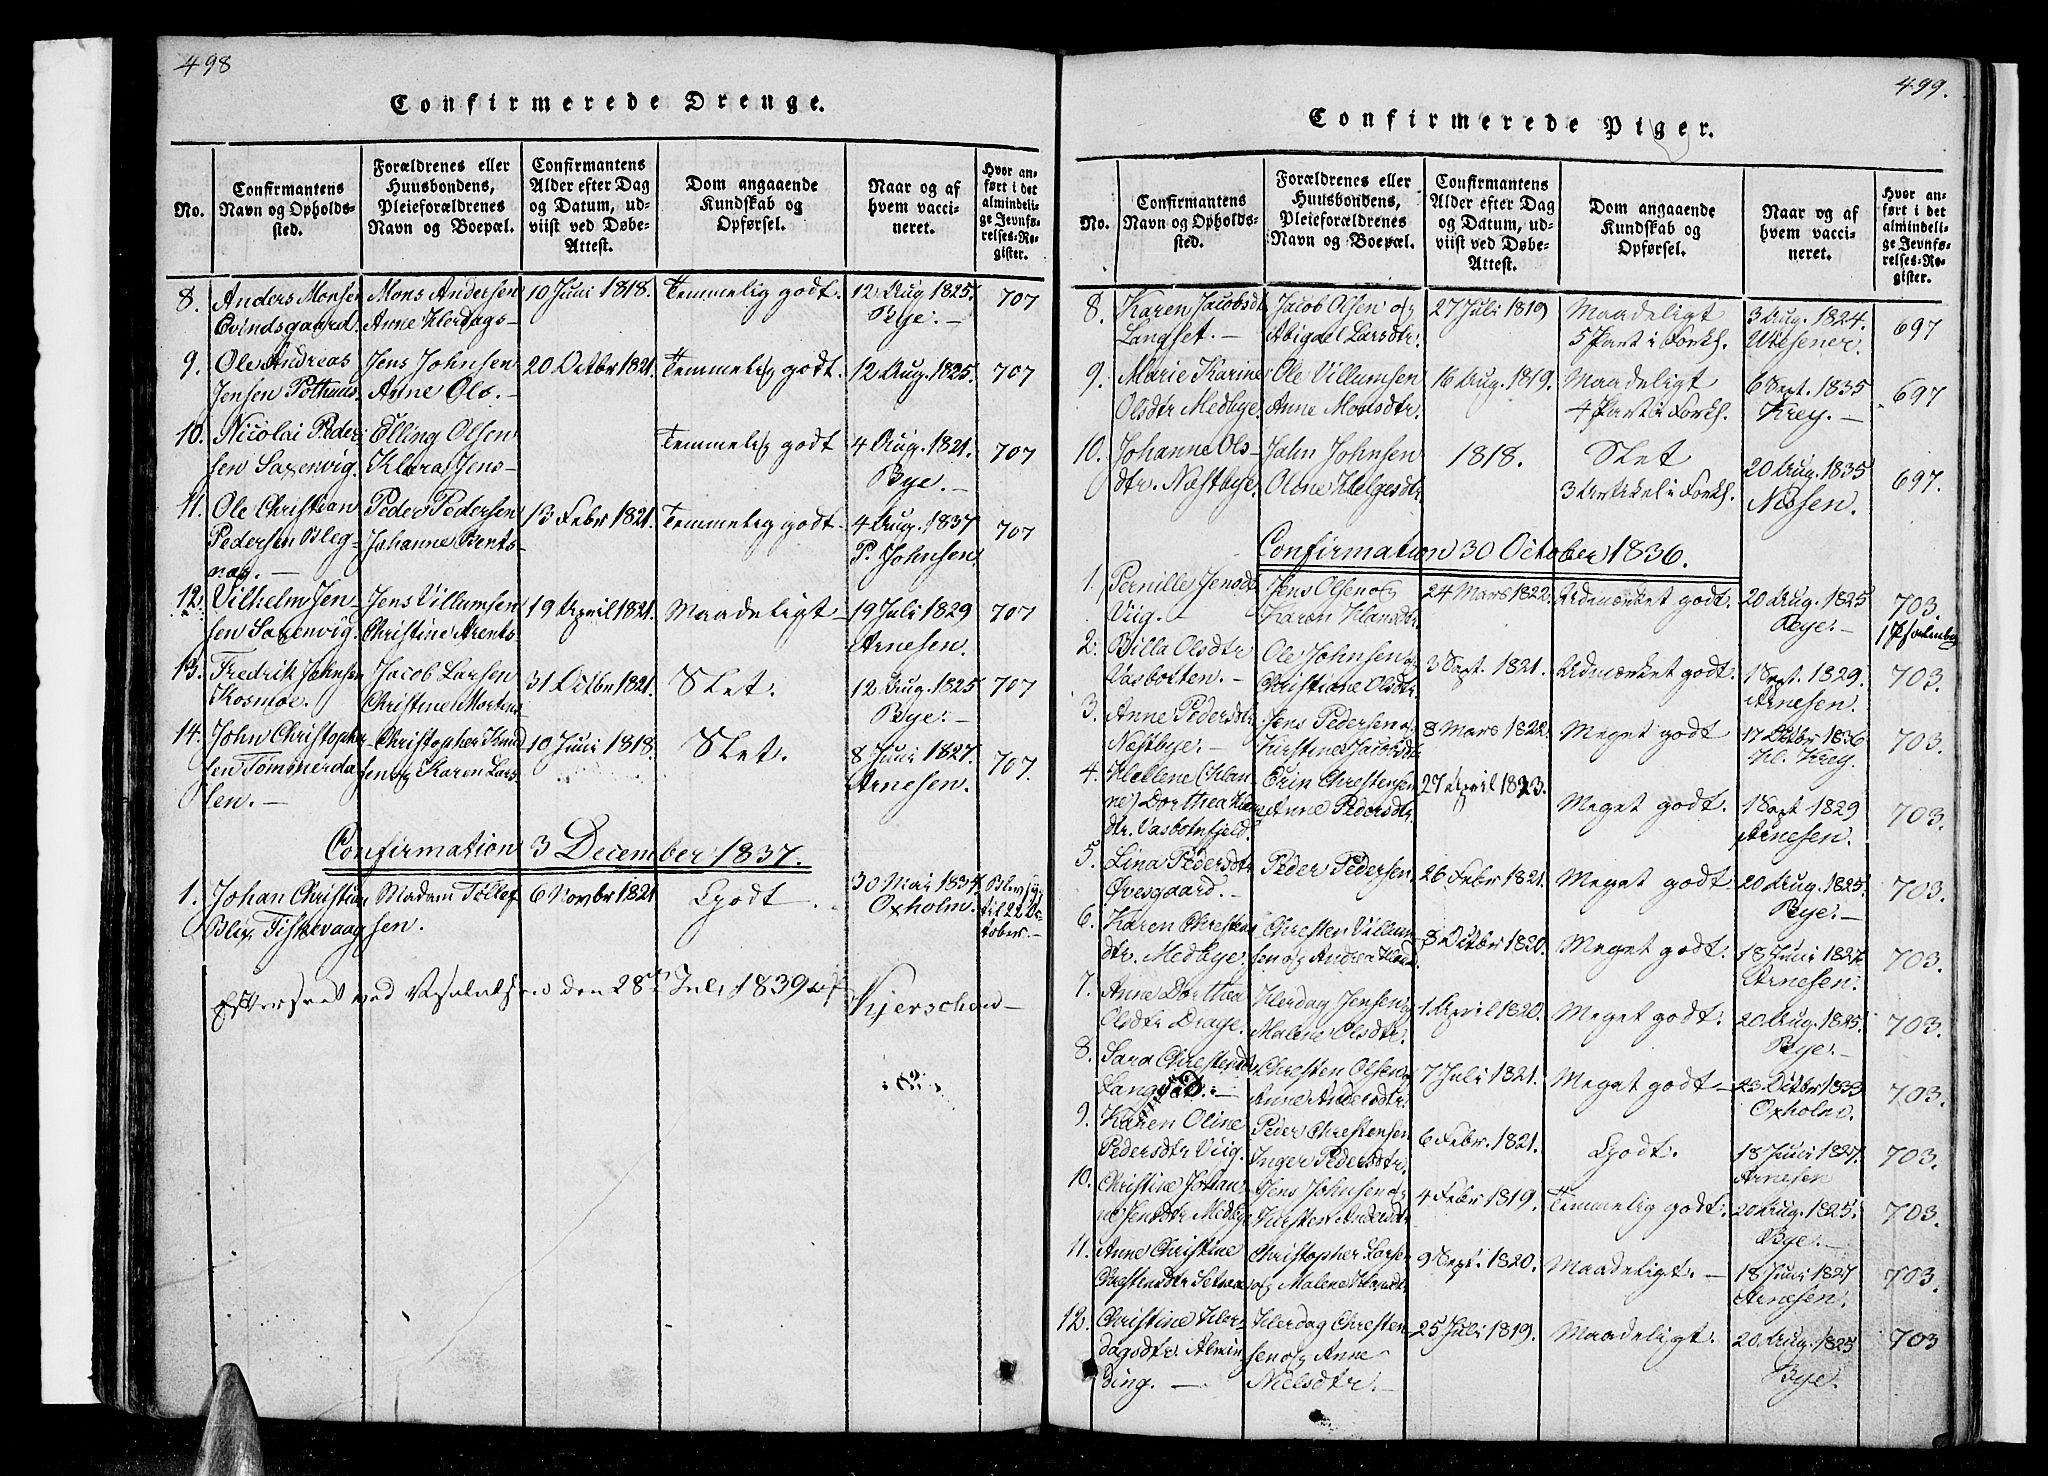 498
Confirmerede Drenge.
No.
Confirmantens Navn og Opholdssted.
Forældrenes eller Huusbondens, Pleieforældrenes Navn og Boepæl.
Confirmantens Alder efter Dag og Datum, udviist ved Døbe-Attest.
Dom angaaende Kundskab og Opførsel.
Naar og af hvem vaccineret.
Hvor anført i det almindelige Jevnførelses-Register.
8. Anders Monsen Mons Andersen 10 Juni 1818. Temmelig godt. 12 Aug 1825. 707
Evindsgaard Anne Herdags- Bye.-
9. Ole Andreas Jens Johnsen 20 Octbr 1821. Temmelig godt. 12 Aug. 1825. 707
Jensen Pothuus Anne Ols.-
10. Nicolai Peder- Elling Olsen Temmelig godt 4 Aug. 1821. 707
sen Saxenvig. Klara Jens- Bye.-
11. Ole Christian Peder Pedersen 13 Febr 1821. Temmelig godt- 4 Aug. 1837 707
Pedersen Bleg- Johanne Arents- P. Johnsen
næs.-
12. Vilhelm Jen- Jens Villumsen 19 April 1821. Maadeligt- 19 Juli 1829 707
sen Saxenvig. Christine Arents- Arnesen.
13. Fredrik Johnsen Jacob Larsen 31 Octbr 1821. Slet. 12 Aug. 1825 707
Kosmoe. Christine Mortens Bye.-
14. John Christopher- Christopher Knud 10 Juni 1818. Slet. 8 Juni 1827. 707.
sen Tømmerda sen og Karen Lars Arnesen.
len.-
Confirmation 3 December 1837.
1. Johan Christian Madam Tollef 6 Novbr 1821 Godt. 30 Mai 1837. Blev syg
Blix Fiskevaag sen. Oxholm. til 22 Oc-
tober.-
Efterseet ved Visitatsen den 28de Juli 1839 af Kjerschow-
499.
Confirmerede Piger.
No.
Confirmantens Navn og Opholdssted.
Forældrenes eller Huusbondens, Pleieforældrenes Navn og Boepæl.
Confirmantens Alder efter Dag og Datum, udviist ved Døbe-Attest.
Dom angaaende Kundskab og Opførsel.
Naar og af hvem vaccineret.
Hvor anført i det almindelige Jevnførelses-Register.
8. Karen Jacobsdtr Jacob Olsen og 27 Juli 1819 Maadeligt 3 Aug. 1824. 697
Langset.- Abigael Larsdtr. 5 Part i Forkl. Utesener.
9. Marie Karine Ole Villumsen 16 Aug. 1819. Maadeligt 6 Sept. 1835 697
Olsdtr Medbye. Anne Monsdtr. 4 Part i Forkl. Krey.-
10. Johanne Ols- Jahn Johnsen 1818. Slet 20 Aug. 1835 697.
dtr. Næstbye. Olone Helgesdtr. 3 Artikel i Forkl. Nissen.
Confirmation 30 October 1836.
1. Pernille Jensdtr Jens Olsen og 24 Mars 1822. Udmærket godt. 20 Aug. 1825 703.
Viig. Karen Hansdtr. Bye.-
2. Billa Olsdtr Ole Johnsen og 3 Sept. 1821. Udmærket godt. 1 Sept. 1829. 703.
Vasbotten.- Christiane Olsdtr. Arnesen.
3. Anne Pedersdtr Jens Pedersen og 8 Mars 1822. Meget godt 17 Octbr 1836 703.
Næstbye.- Kirstine Jacobsdtr. Krey.
4. Hellene Dorthea Christensen 27 April 1823. Meget godt. 1 Sept 1829 703.
dtr. Vasbotnfjeld. Anne Pedersdtr. Arnesen.
5. Lina Pedersdtr Peder Pedersen. 26 Febr 1821. Meget godt. 20 Aug. 1825. 703.
Øvesgaard.- Bye.-
6. Karen Christens Christen Villum- 8 Octbr 1820. Meget godt. 18 Juni 1827. 703.
dtr. Medbye. sen og Andrea Arnesen.
7. Anne Dorthea Herdag Jensen og 1 April 1820. Meget godt. 20 Aug. 1825. 703.
Olsdtr Drage. Malene Olsdtr. Bye.-
8. Sara Christensdtr Christen Olsen og 7 Juli 1821. Meget godt- 23 Octbr 1833 703.
Langset.- Anne Andersdtr. Oxholm.
9. Karen Oline Peder Christensen 6 Febr. 1821. Godt. 18 Juni 1827. 703.
Pedersdtr Viig. Inger Pedersdtr. Arnesen
10. Christine Johan- Jens Johnsen og 4 Febr 1819. Temmelig godt. 20 Aug. 1825. 703.
ne Jensdtr Medbye Kirsten Andersdtr Bye.-
11. Anne Christine Christopher Larsen 9 Sept. 1820. Maadeligt.- 18 Juni 1827 703.
og Malene Arnesen.
12. Christine Her- Herdag Christen 25 Juli 1819. Maadeligt. 20 Aug. 1825 703
dagsdtr. Almin sen og Anne Bye.
ding.- Nielsdtr.-